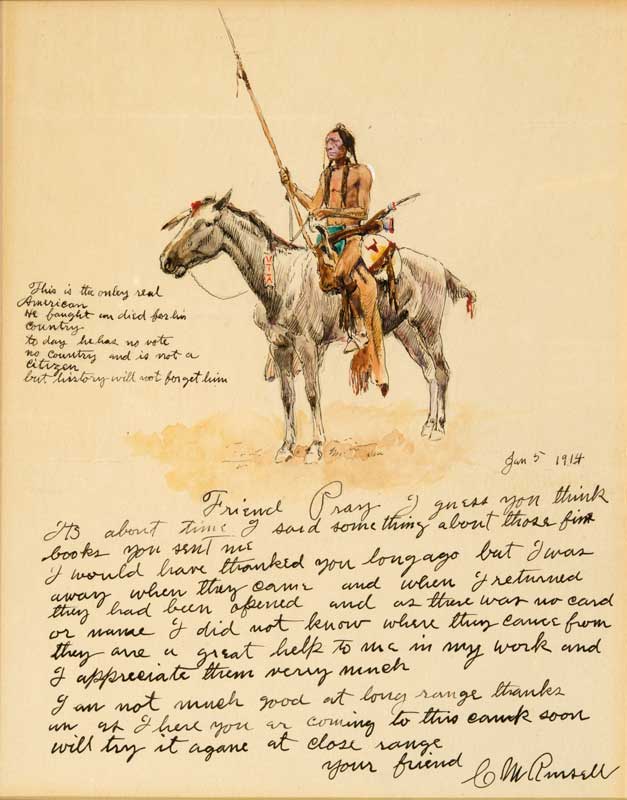 This is the only real
American
He faught an died for his
country
to day he has no vote
no country and is not a
citizen
but history will not forget him
Jan 5 1914
Friend Pray I guess you think
Its about time I said something about those fine
books you sent me
I would have thanked you longago but I was
away when they came and when I returned
they had been opened and as there was no card
or name I did not know where they came from
they are a great help to me in my work and
I appreciate them verry much
I am not much good at long range thanks
an as I here you ar coming to this camk soon
will try it agane at close range
your friend
C M Russell